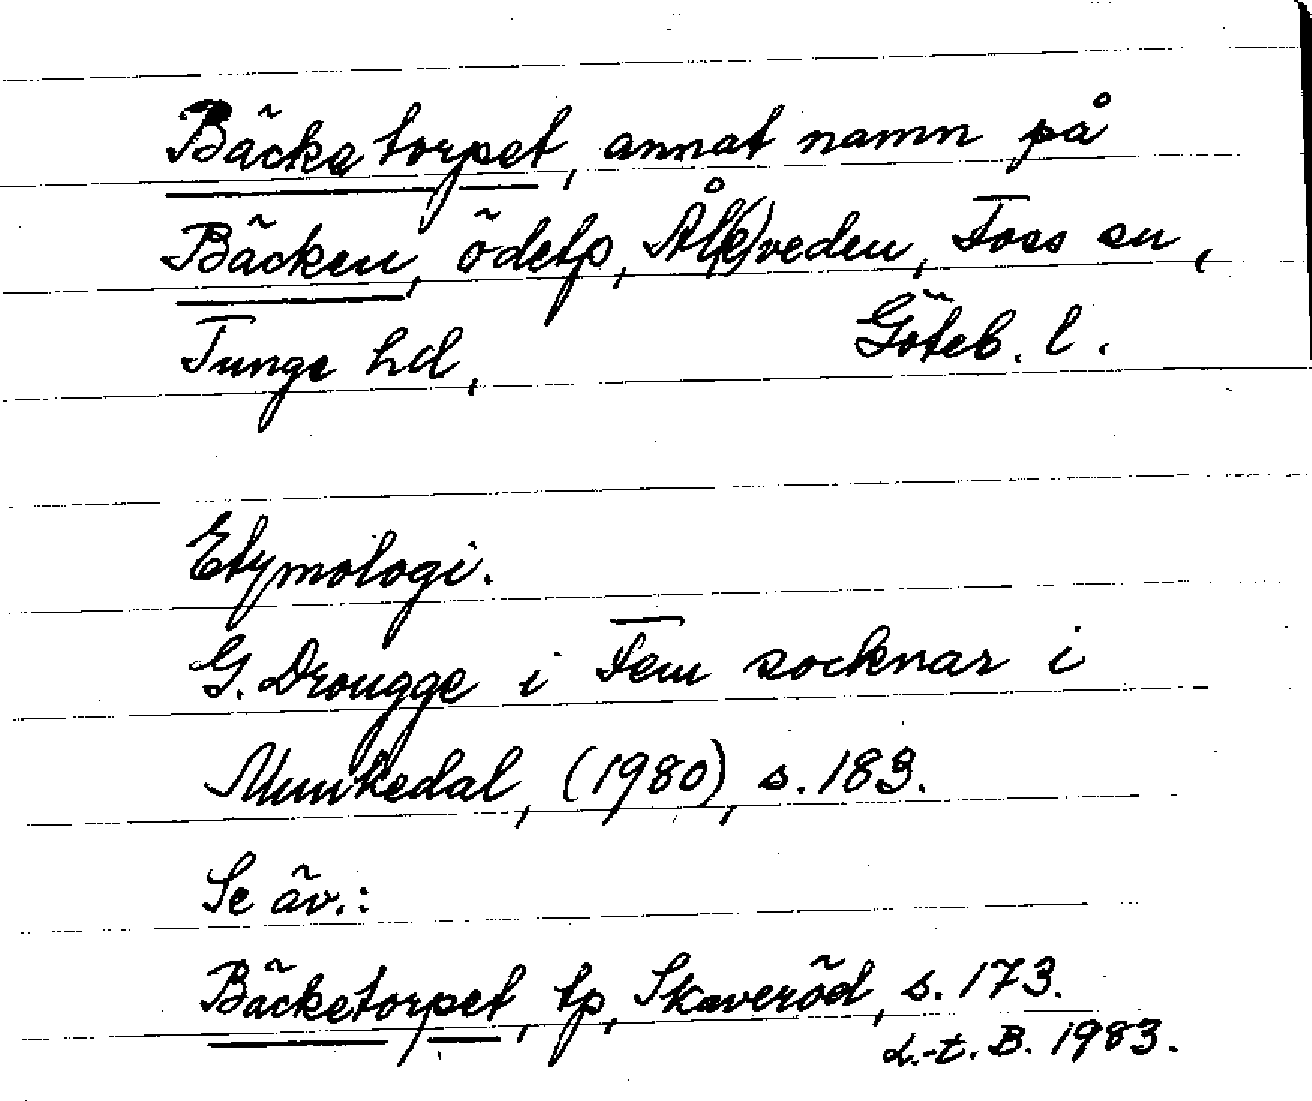 Bäcketorpet, annat namn på
Bäcken, ödetp, Ål(e)veden, Foss sn,
Tunge hd, Göteb. l.
Etymologi.
G. Drougge i Fem socknar i
Munkedal, (1980), s. 183.
Se äv.:
Bäcketorpet, tp, Skaveröd, s. 173.
L.-t. B. 1983.